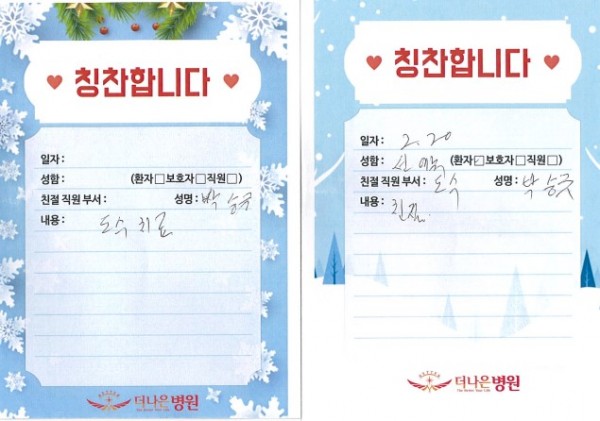 칭찬합니다
일자 :
성함 : (환자□보호자□직원□)
친절 직원 부서 : 성명 : 박승국
내용 : 도수 치료
더나은병원
칭찬합니다
일자 : 2. 20
성함 : 신 (환자☑보호자□직원□)
친절 직원 부서 : 도수 성명 : 박승국
내용 : 친절.
더나은병원
The Better Your Life